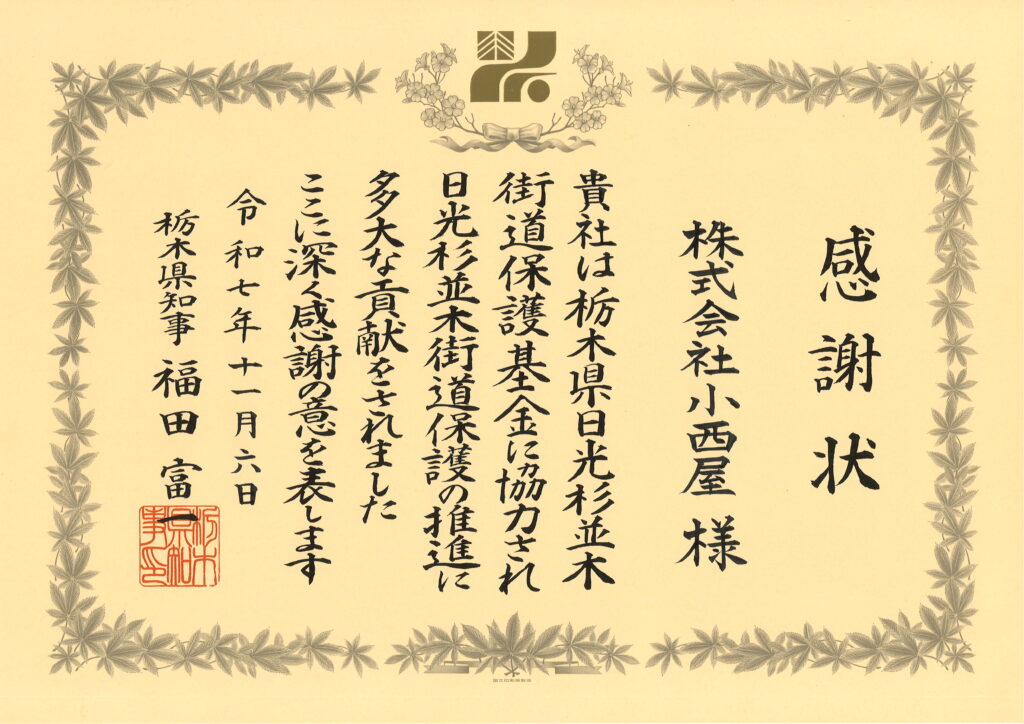 感謝状
株式会社小西屋 様
貴社は栃木県日光杉並木
街道保護基金に協力され
日光杉並木街道保護の推進に
多大な貢献をされました
ここに深く感謝の意を表します
令和七年十一月六日
栃木県知事 福田富一
栃木県知事之印